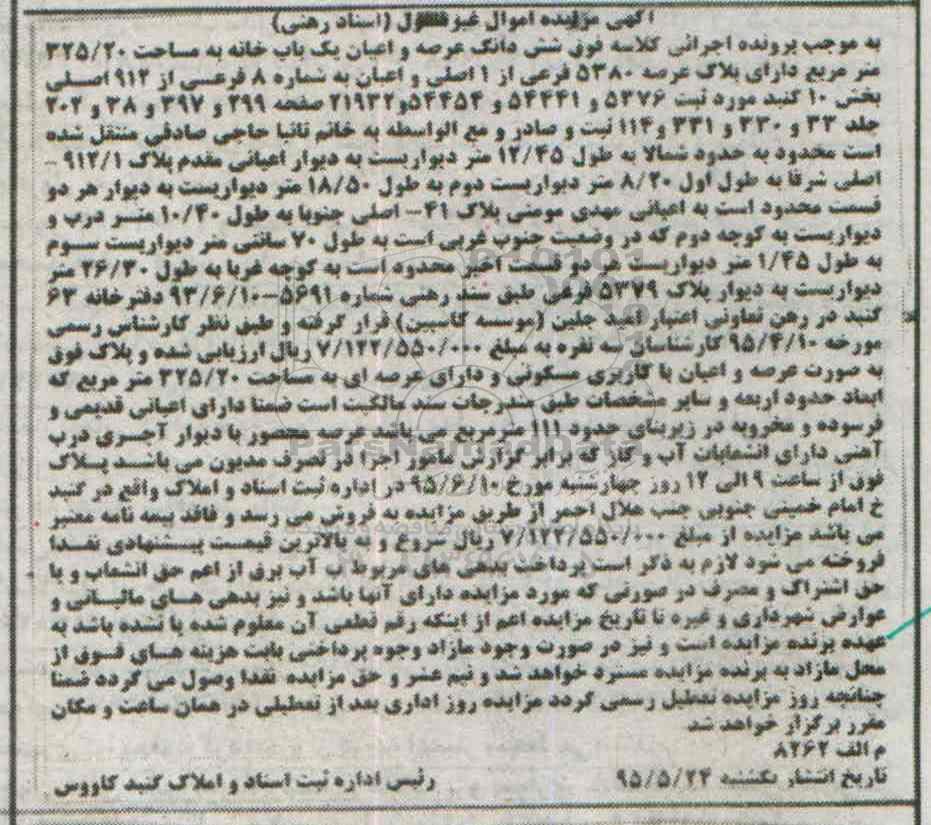 آگهی مزایده اموال غیر منقول (اسناد رهنی)
به موجب پرونده اجرائی کلاسه فوق شش دانگ عرصه و اعیان یک باب خانه به مساحت ۳۲۵/۲۰
متر مربع دارای پلاک عرصه ۵۳۸۰ فرعی از ۱ اصلی و اعیان به شماره ۸ فرعی از ۹۱۲ اصلی
بخش ۱۰ گنبد مورد ثبت ۵۳۷۶ و ۵۴۴۴۱ و ۵۴۴۵۴و ۲۱۹۳۲ صفحه ۲۹۹ و ۳۹۷ و ۳۸ و ۲۰۲
جلد ۳۳ و ۳۳۰ و ۳۳۱ و۱۱۴ ثبت و صادر و مع الواسطه به خانم تانیا حاجی صادقی منتقل شده
است محدود به حدود شمالا به طول ۱۲/۴۵ متر دیواریست به دیوار اعیانی مقدم پلاک ۹۱۲/۱ –
اصلی شرقا به طول اول ۸/۲۰ متر دیواریست دوم به طول ۱۸/۵۰ متر دیواریست به دیوار هر دو
قسمت محدود است به اعیانی مهدی مومنی پلاک ۴۱– اصلی جنوبا به طول ۱۰/۴۰ متر درب و
دیواریست به کوچه دوم که در وضعیت جنوب غربی است به طول ۷۰ سانتی متر دیواریست سوم
به طول ۱/۴۵ متر دیواریست هر دو قسمت اخیر محدود است به کوچه غربا به طول ۲۶/۳۰ متر
دیواریست به دیوار پلاک ۵۳۷۹ فرعی طبق سند رهنی شماره ۵۶۹۱–۹۳/۶/۱۰ دفترخانه ۶۳
گنبد در رهن تعاونی اعتبار امید جلین (موسسه کاسپین) قرار گرفته و طبق نظر کارشناس رسمی
مورخه ۹۵/۴/۱۰ کارشناسان سه نفره به مبلغ ۷/۱۲۲/۵۵۰/۰۰۰ ریال ارزیابی شده و پلاک فوق
به صورت عرصه و اعیان با کاربری مسکونی و دارای عرصه ای به مساحت ۳۲۵/۲۰ متر مربع که
ابعاد حدود اربعه و سایر مشخصات طبق مندرجات سند مالکیت است ضمنا دارای اعیانی قدیمی و
فرسوده و مخروبه در زیربنای حدود ۱۱۱ متر مربع می باشد عرصه محصور با دیوار آجری درب
آهنی دارای انشعابات آب و گاز که برابر گزارش مامور اجرا در تصرف مدیون می باشد پلاک
فوق از ساعت ۹ الی ۱۲ روز چهارشنبه مورخ ۹۵/۶/۱۰ در اداره ثبت اسناد و املاک واقع در گنبد
خ امام خمینی جنوبی جنب هلال احمر از طریق مزایده به فروش می رسد و فاقد بیمه نامه معتبر
می باشد مزایده از مبلغ ۷/۱۲۲/۵۵۰/۰۰۰ ریال شروع و به بالاترین قیمت پیشنهادی نقدا
فروخته می شود لازم به ذکر است پرداخت بدهی های مربوط ب آب برق از اعم حق انشعاب و یا
حق اشتراک و مصرف در صورتی که مورد مزایده دارای آنها باشد و نیز بدهی های مالیاتی و
عوارض شهرداری و غیره تا تاریخ مزایده اعم از اینکه رقم قطعی آن معلوم شده یا نشده باشد به
عهده برنده مزایده است و نیز در صورت وجود مازاد وجوه پرداختی بابت هزینه های فوق از
محل مازاد به برنده مزایده مسترد خواهد شد و نیم عشر و حق مزایده نقدا وصول می گردد ضمنا
چنانچه روز مزایده تعطیل رسمی گردد مزایده روز اداری بعد از تعطیلی در همان ساعت و مکان
مقرر برگزار خواهد شد
م الف ۸۲۶۲
تاریخ انتشار یکشنبه ۹۵/۵/۲۴
رئیس اداره ثبت اسناد و املاک گنبد کاووس
ParsNamadData